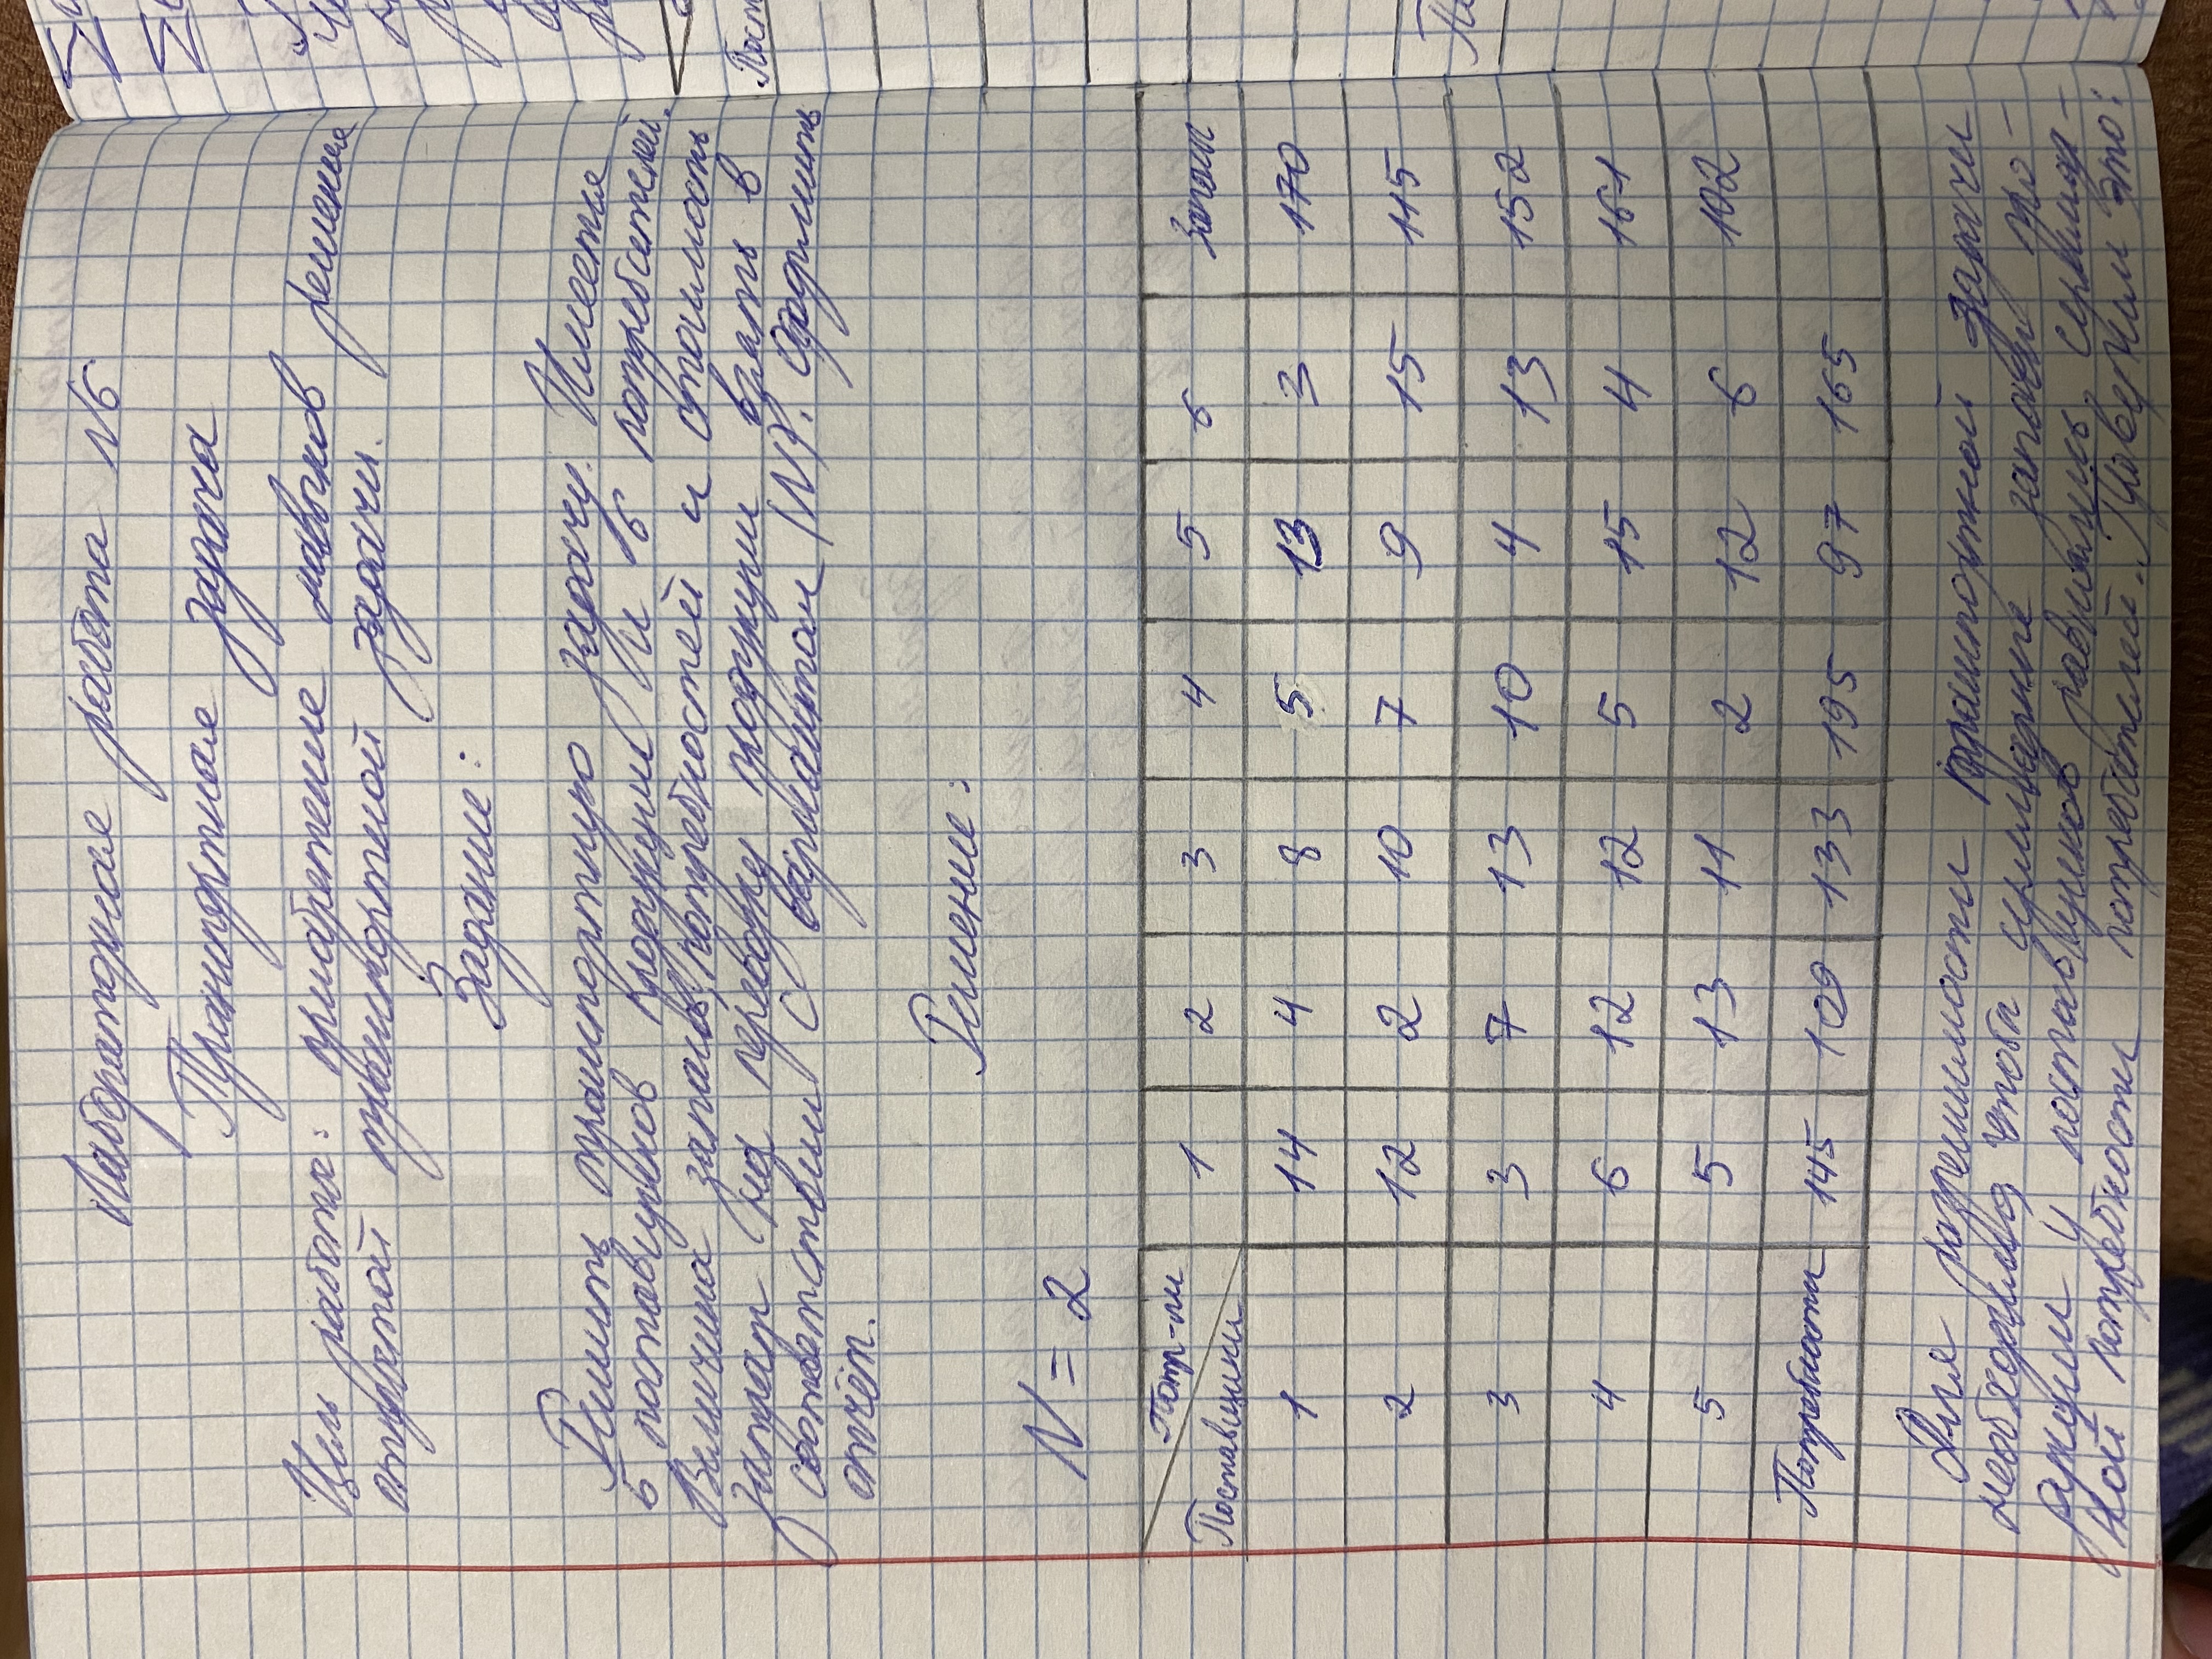 Лабораторная работа №6
Транспортная задача
Цель работы: приобретение навыков решения
открытой транспортной задачи.
Задание:
Решить транспортную задачу. Имеется
5 поставщиков продукции и 6 потребителей.
Величина запасов, потребностей и стоимость
затрат на перевозку продукции взять в
соответствии с вариантом (N). Оформить
отчёт.
Решение:
N = 2
Потр-ли
Поставщики 1 2 3 4 5 6 Запасы
1 14 4 8 5 13 3 170
2 12 2 10 7 9 15 115
3 3 7 13 10 4 13 152
4 6 12 12 5 15 4 161
5 5 13 11 2 12 6 102
Потребности 145 109 133 195 97 165
Для разрешимости транспортной задачи
необходимо, чтобы суммарные запасы про-
дукции у поставщиков равнялись суммар-
ной потребности потребителей. Проверим это:
Пост